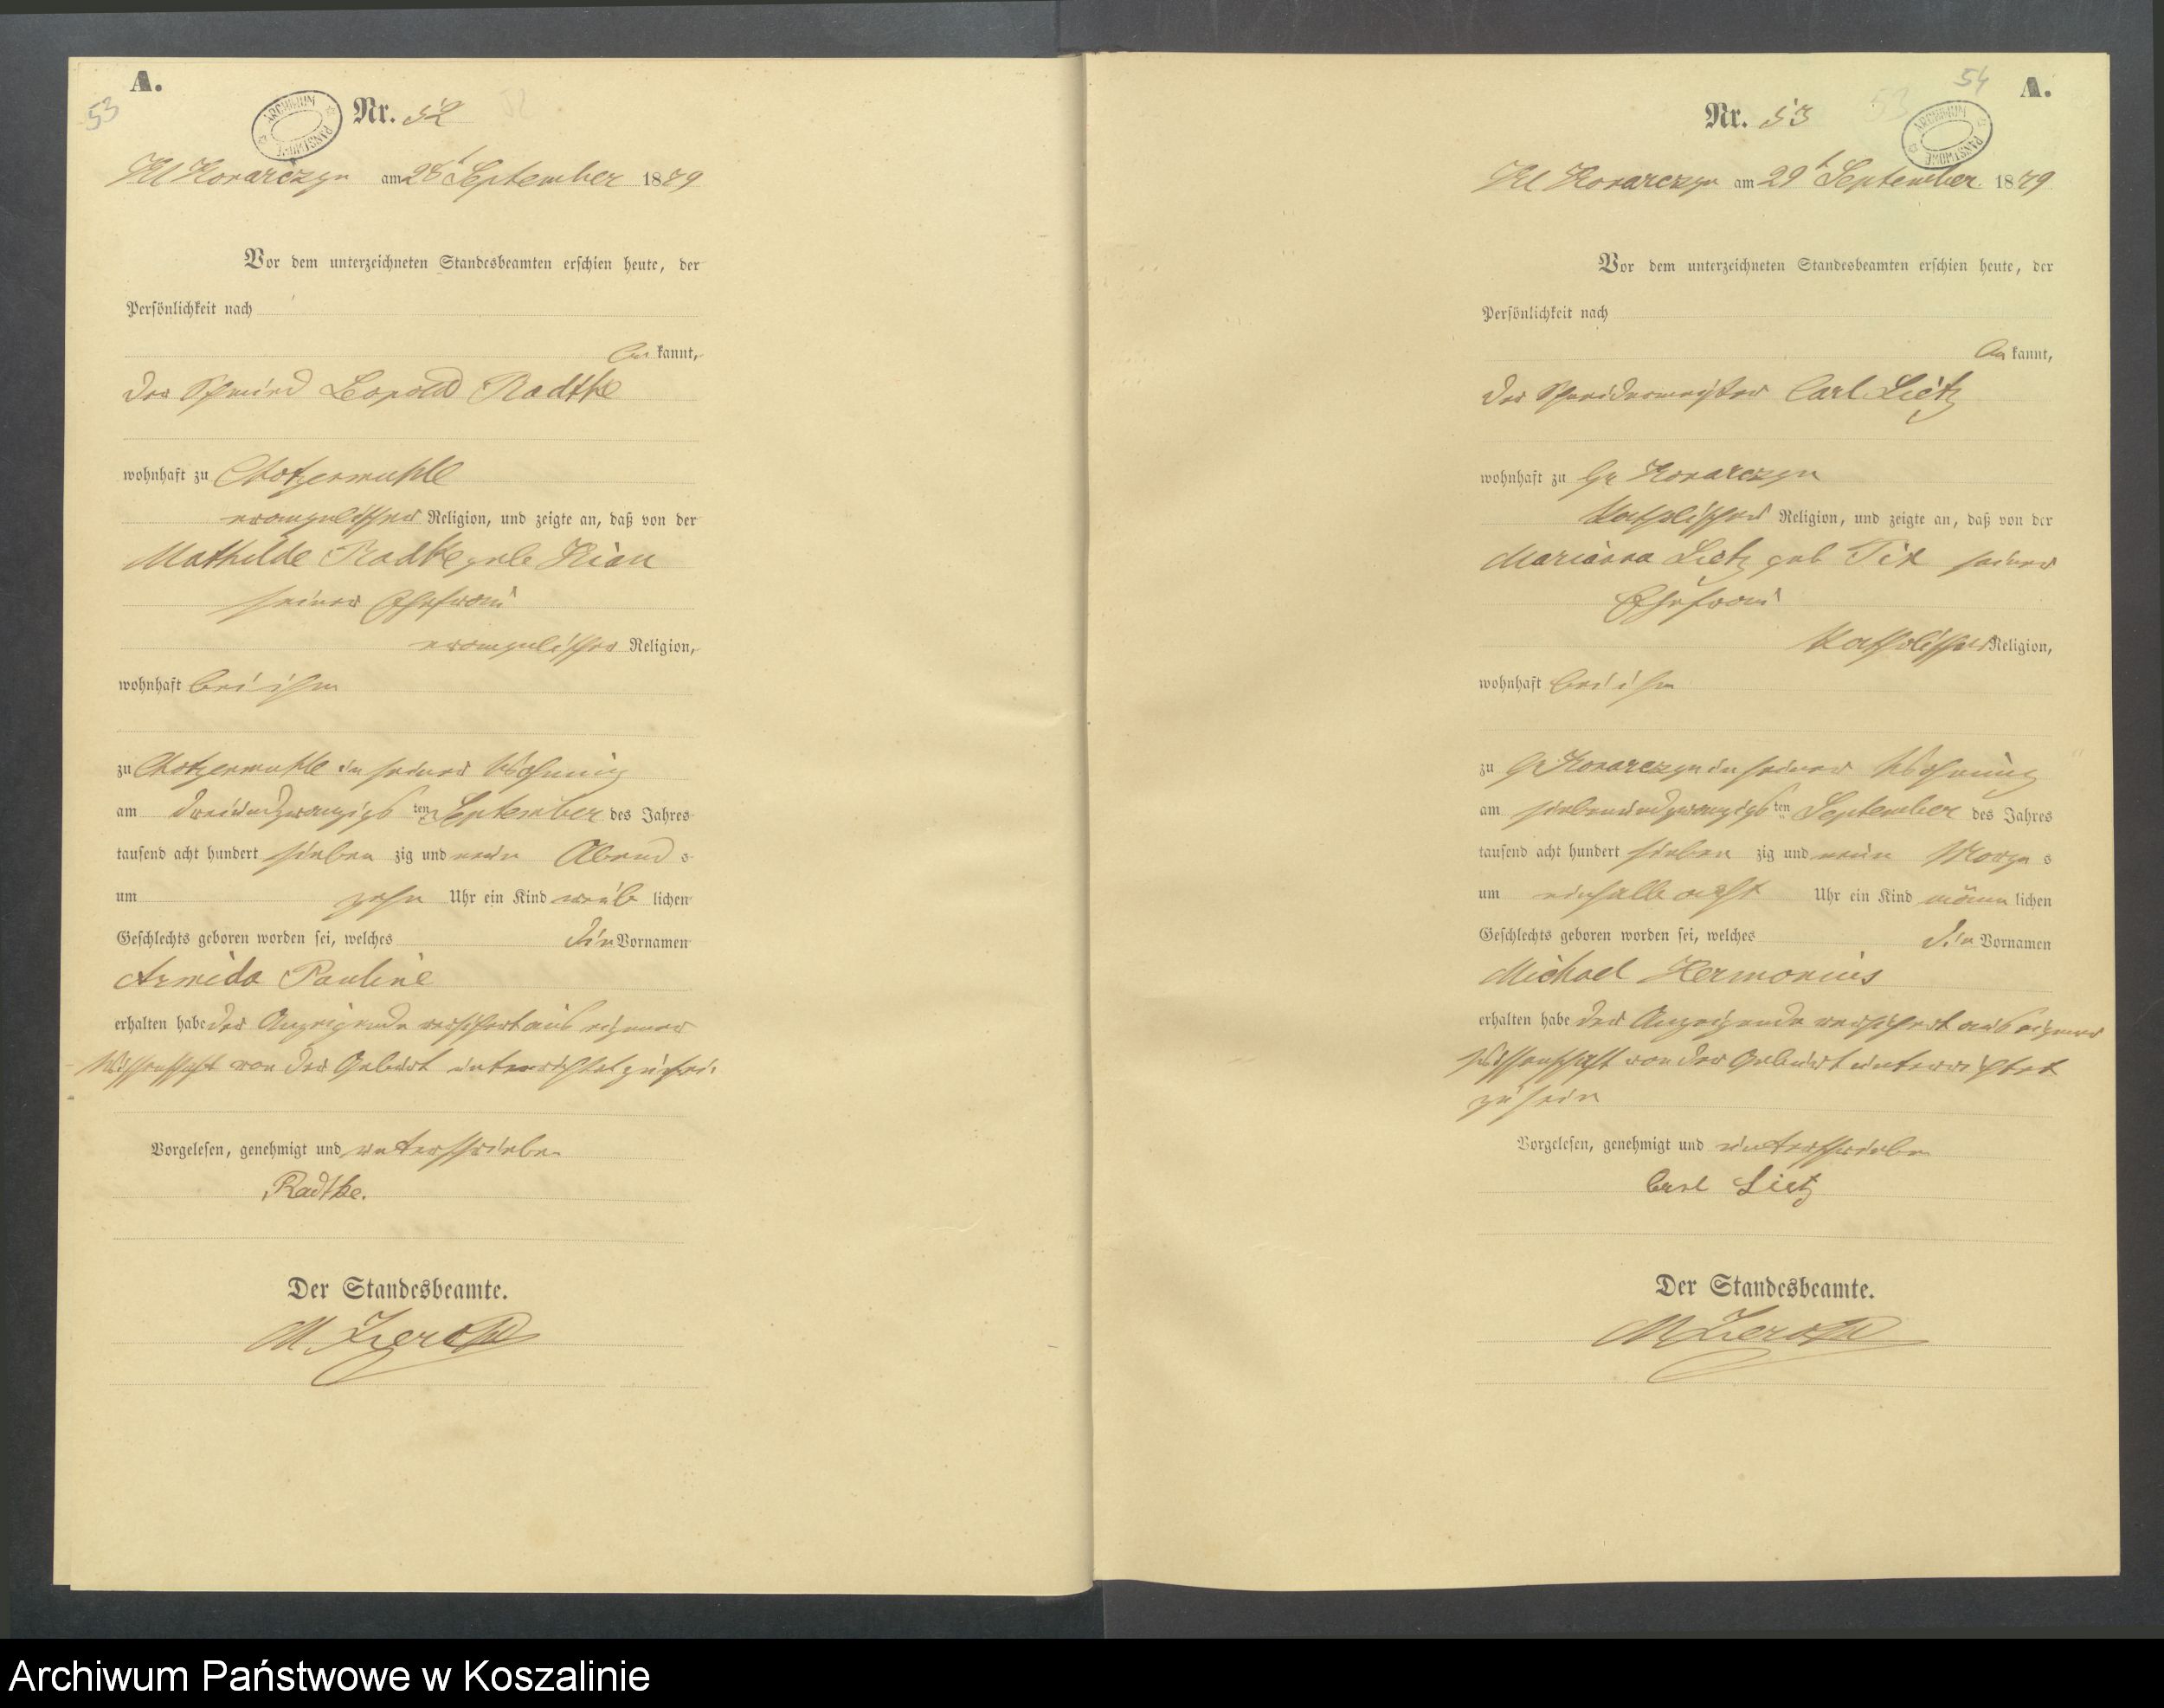 A.
53
ARCHIWUM PAŃSTWOWE
Nr. 52
52
Kl Konarczyn am 28t September 1879
Vor dem unterzeichneten Standesbeamten erschien heute, der
Persönlichkeit nach
be kannt,
der Schmied Leopold Radtke
wohnhaft zu Chotzenmuhle
evangelischer Religion, und zeigte an, daß von der
Mathilde Radtke geb
seiner Ehefrau
evangelischer Religion,
wohnhaft bei ihm
zu Chotzenmuhle in seiner Wohnung
am dreiundzwanzigs ten September des Jahres
tausend acht hundert sieben zig und neun Abend s
um zehn Uhr ein Kind weib lichen
Geschlechts geboren worden sei, welches die Vornamen
Armida Pauline
erhalten habe der Anzeigende versichert aus eigener
Wissenschaft von der Geburt unterrichtet zu sein
Vorgelesen, genehmigt und unterschrieben
Radtke.
Der Standesbeamte.
M
54
A.
53
ARCHIWUM PAŃSTWOWE
Nr. 53
Kl Konarczyn am 29t September 1879
Vor dem unterzeichneten Standesbeamten erschien heute, der
Persönlichkeit nach
be kannt,
der Schneidermeister Carl Lietz
wohnhaft zu Gr Konarczyn
katholischer Religion, und zeigte an, daß von der
Marianna Lietz geb seiner
Ehefrau
katholischer Religion,
wohnhaft bei ihm
zu Gr Konarczyn in seiner Wohnung
am siebenundzwanzigs ten September des Jahres
tausend acht hundert sieben zig und neun Morgen s
um einhalb acht Uhr ein Kind männ lichen
Geschlechts geboren worden sei, welches die Vornamen
Michael
erhalten habe der Anzeigende versichert aus eigener
Wissenschaft von der Geburt unterrichtet
zu sein
Vorgelesen, genehmigt und unterschrieben
Carl Lietz
Der Standesbeamte.
M
Archiwum Państwowe w Koszalinie